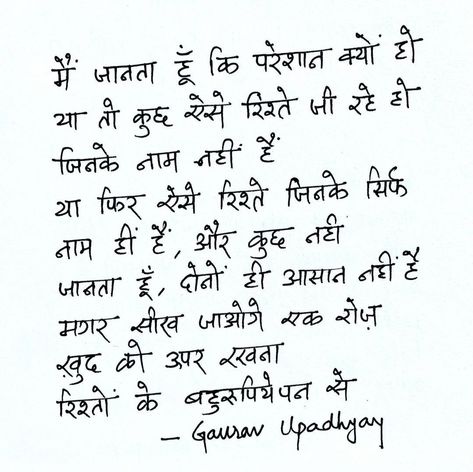 में जानता हूँ कि परेशान क्यों हो
या तो कुछ ऐसे रिश्ते जी रहे हो
जिनके नाम नहीं हैं
या फिर ऐसे रिश्ते जिनके सिर्फ
नाम हीं हैं, और कुछ नहीं
जानता हूँ, दोनों ही आसान नहीं है
मगर सीख जाओगे एक रोज़
ख़ुद को उपर रखना
रिश्तों के बहुरूपियेपन से
– Gaurav Upadhyay